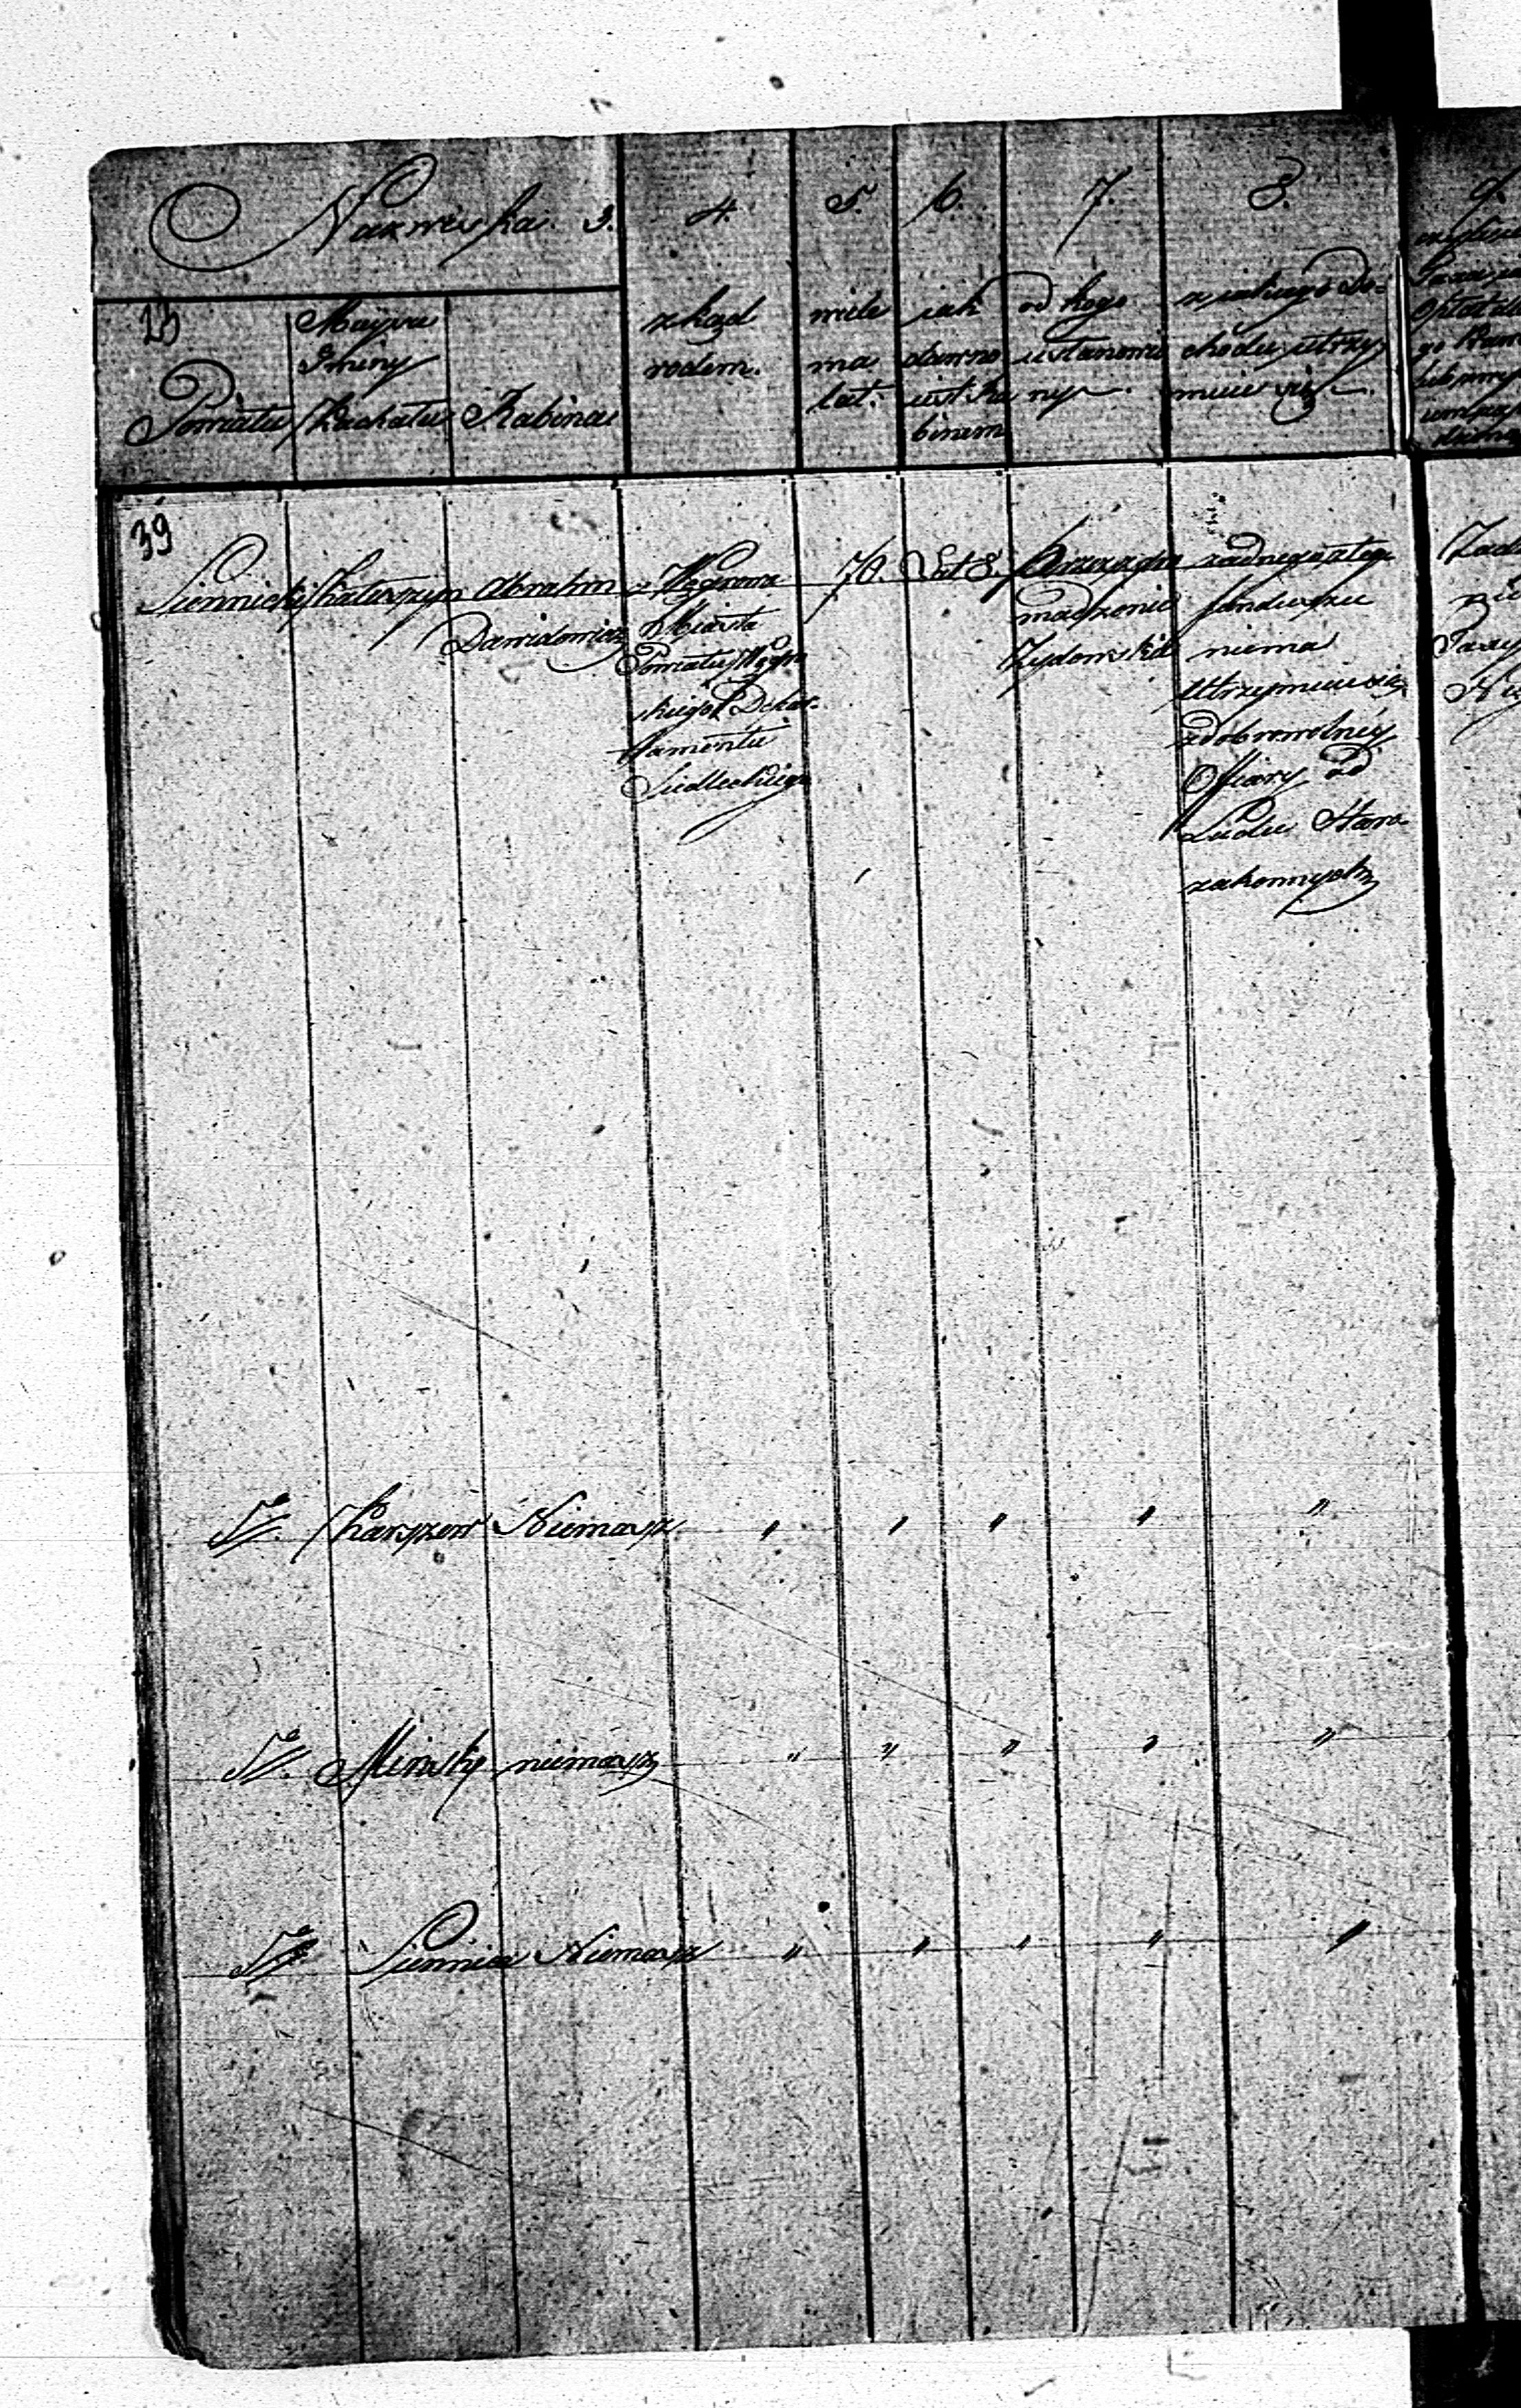 Nazwiska. 3.
4.
5.
6.
7.
8.
9.
23
Powiatu
Mayeru
Gminy
Kachału
Rabina
zkąd
rodem.
wiele
ma
lat.
iak
dawno
iest Ra
binem
od kogo
ustanowio
ny.
z iakiego Do=
chodu utrzy
muie się.
39
Siennicki
Kałuszyn
Abrahm
Dawidowicz
z Węgrowa
Miasta
Powiatu Węgro
skiego Depar
tamentu
Siedleckiego
70.
Lat 8.
Przez zgro
madzenie
Żydowskie
żadnego stałego
funduszu
niema
utrzymuie się
z dobrowolnéy
Ofiary od
Ludu Staro
zakonnych
T.
Karczew
Niemasz
"
"
"
"
"
T.
Minsk
niemasz
"
"
"
"
"
T.
Siennica
Niemasz
"
"
"
"
"